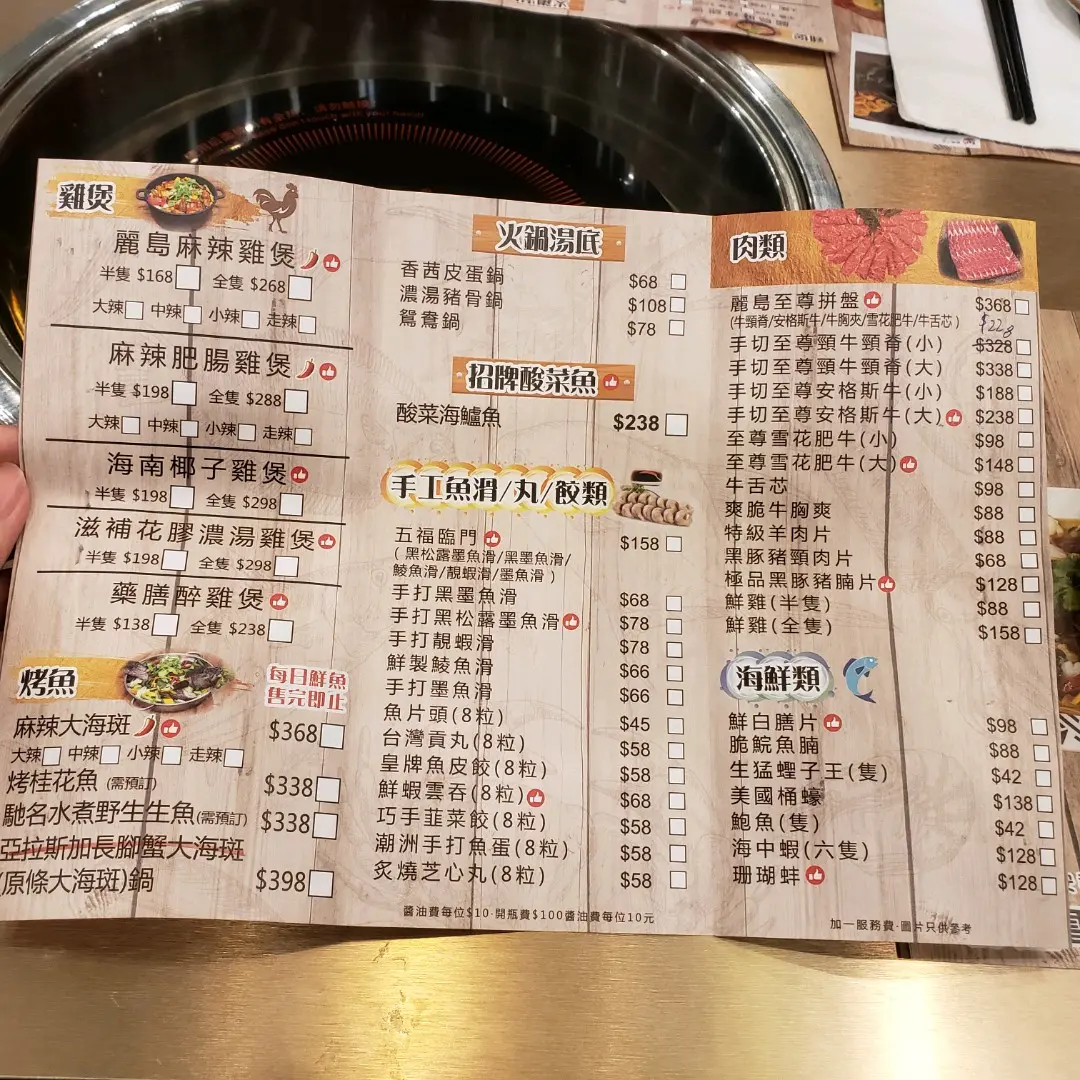 雞煲
麗島麻辣雞煲
半隻 $168 全隻 $268
大辣 中辣 小辣 走辣
麻辣肥腸雞煲
半隻 $198 全隻 $288
大辣 中辣 小辣 走辣
海南椰子雞煲
半隻 $198 全隻 $298
滋補花膠濃湯雞煲
半隻 $198 全隻 $298
藥膳醉雞煲
半隻 $138 全隻 $238
烤魚
每日鮮魚
售完即止
麻辣大海斑 $368
大辣 中辣 小辣 走辣
烤桂花魚(需預訂) $338
馳名水煮野生生魚(需預訂) $338
亞拉斯加長腳蟹大海斑
(原條大海斑)鍋 $398
火鍋湯底
香茜皮蛋鍋 $68
濃湯豬骨鍋 $108
鴛鴦鍋 $78
招牌酸菜魚
酸菜海鱸魚 $238
手工魚滑/丸/餃類
五福臨門 $158
(黑松露墨魚滑/黑墨魚滑/
鯪魚滑/靚蝦滑/墨魚滑)
手打黑墨魚滑 $68
手打黑松露墨魚滑 $78
手打靚蝦滑 $78
鮮製鯪魚滑 $66
手打墨魚滑 $66
魚片頭(8粒) $45
台灣貢丸(8粒) $58
皇牌魚皮餃(8粒) $58
鮮蝦雲吞(8粒) $68
巧手韮菜餃(8粒) $58
潮洲手打魚蛋(8粒) $58
炙燒芝心丸(8粒) $58
醬油費每位$10·開瓶費$100醬油費每位10元
肉類
麗島至尊拼盤 $368
(牛頸脊/安格斯牛/牛胸夾/雪花肥牛/牛舌芯)
$228
手切至尊頸牛頸脊(小) $328
手切至尊頸牛頸脊(大) $338
手切至尊安格斯牛(小) $188
手切至尊安格斯牛(大) $238
至尊雪花肥牛(小) $98
至尊雪花肥牛(大) $148
牛舌芯 $98
爽脆牛胸爽 $88
特級羊肉片 $88
黑豚豬頸肉片 $68
極品黑豚豬腩片 $128
鮮雞(半隻) $88
鮮雞(全隻) $158
海鮮類
鮮白膳片 $98
脆鯇魚腩 $88
生猛蟶子王(隻) $42
美國桶蠔 $138
鮑魚(隻) $42
海中蝦(六隻) $128
珊瑚蚌 $128
加一服務費·圖片只供參考